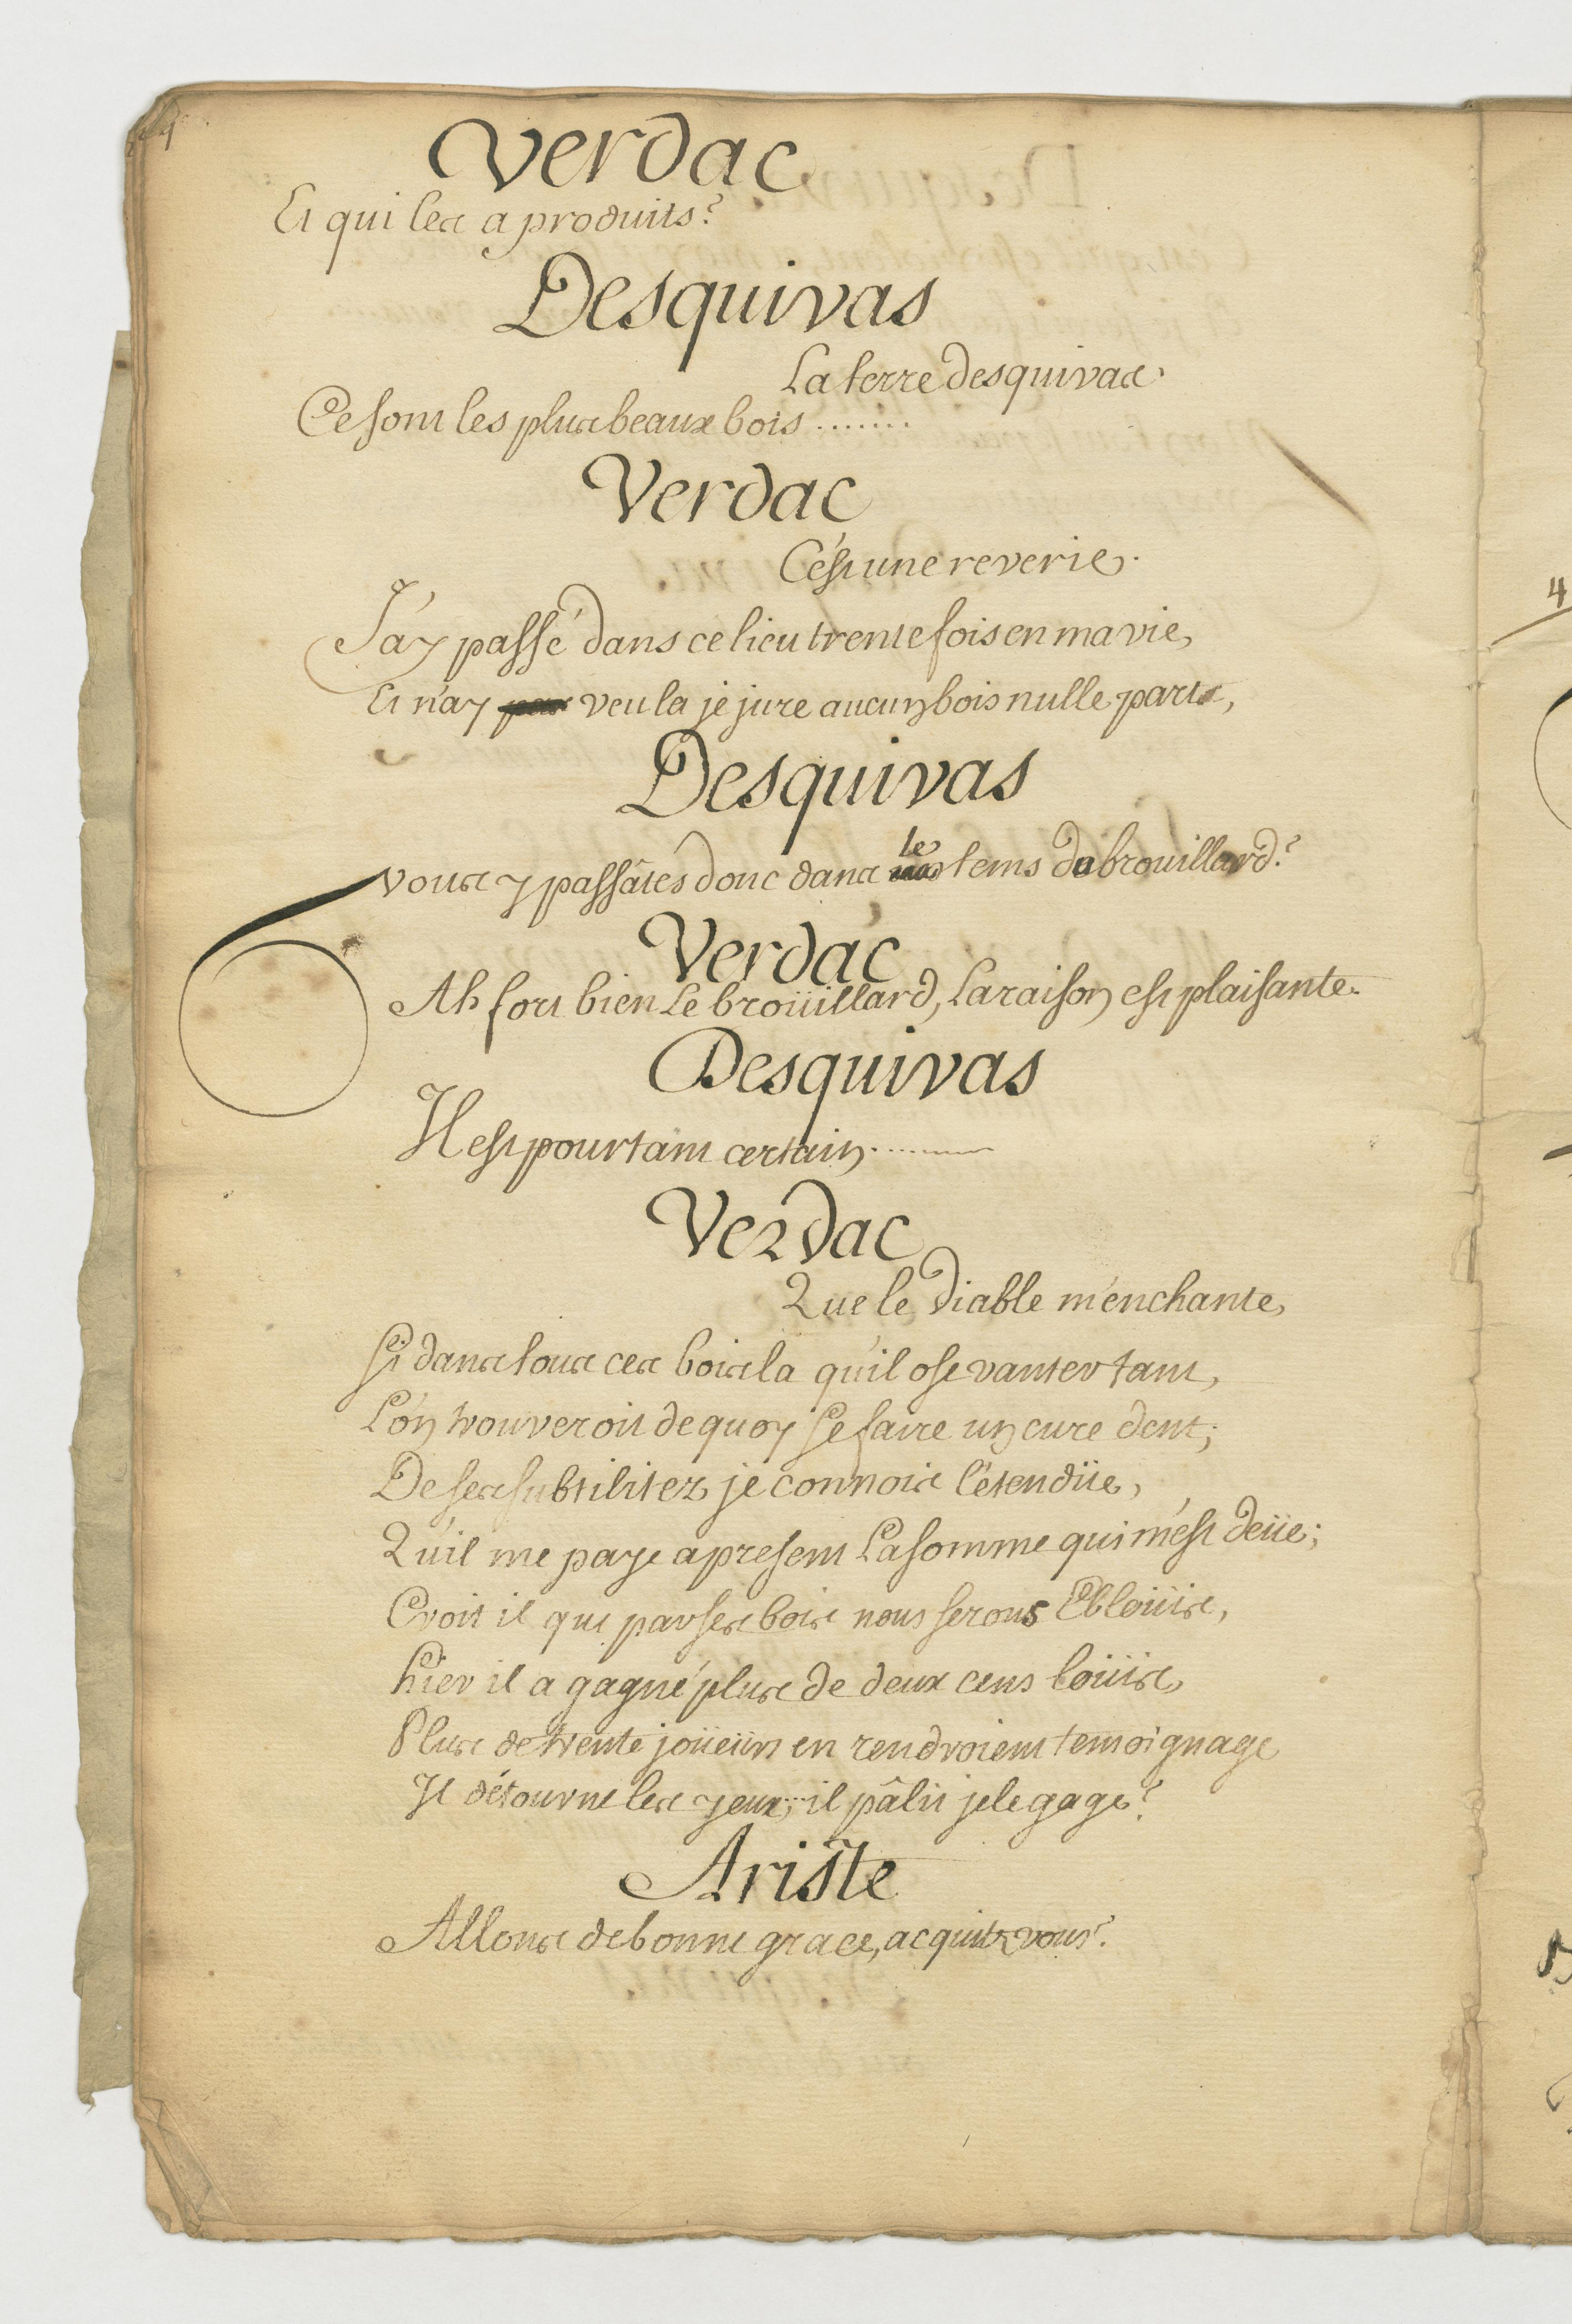 Verdac
Et qui les a produits?
Desquivas
La terre desquivas.
Ce sont les plus beaux bois .......
Verdac
C'est une reverie.
J'ay passé dans ce lieu trente fois en ma vie,
Et n'ay veu la je jure aucun bois nulle part,
Desquivas
vous y passâtes donc dans le tems du brouillard?
Verdac
Ah fort bien Le broüillard, La raison est plaisante.
Desquivas
Il est pourtant certain.........
Verdac
Que le Diable m'enchante,
Si dans tous ces bois la qu'il ose vanter tant,
L'on trouveroit de quoy se faire un cure dent;
De ses subtilitez je connois l'étendüe,
Qu'il me paye a present La somme qui m'est deüe;
Croit il que par ses bois nous serons Ebloüis,
hier il a gagné plus de deux cens loüis,
Plus de trente joüeurs en rendroient temoignage
Il détourne les yeux, il pâlit je le gage?
Ariste
Allons de bonne grace, acquitez vous?